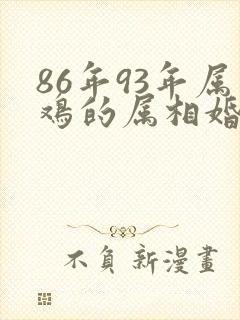 86年93年属
鸡的属相婚
不負新漫畫